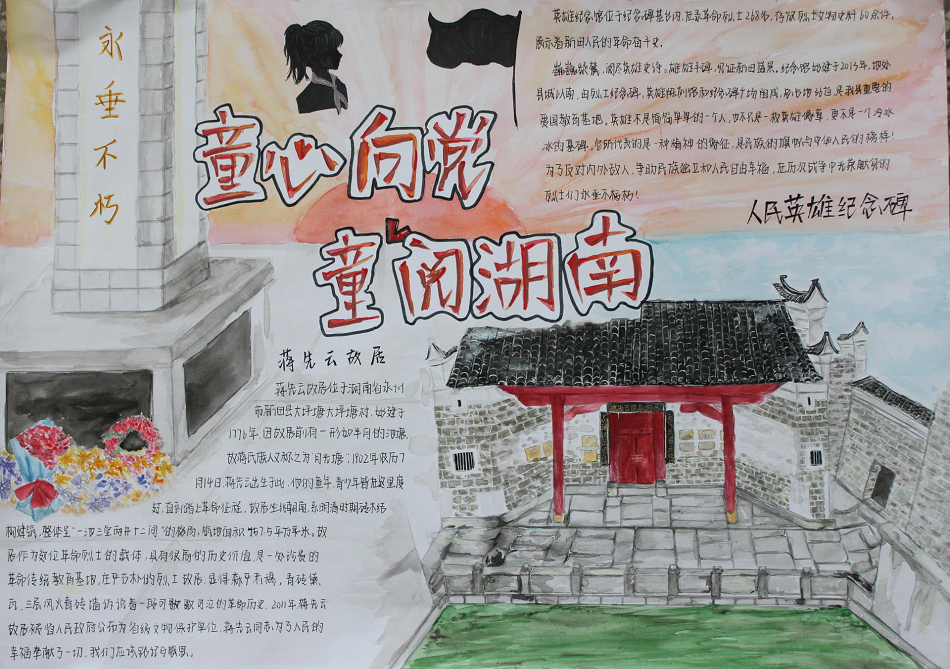 永垂不朽
童心向党
童阅湖南
英雄纪念馆位于纪念碑基比内,在泰革命烈士268名,存放烈士文物史料60余件,
展示着新田人民的革命奋斗史。
巍巍,阅尽英雄史诗。雄雄丰碑,见证新田盛景。纪念馆始建于2015年,地处
县城以南,由烈士纪念碑、英雄陈列馆和纪念碑广场组成,是我县重要的
爱国教育基地。英雄不是简简单单的一个人,也不只是一枚英雄徽章,更不是一个冷冰
冰的墓碑。它所代表的是一种精神的象征,是民族的旗帜与中华人民的榜样!
为了反对内外敌人,争取民族独立和人民自由幸福,在历次战争中光荣献身的
烈士们永垂不朽!
人民英雄纪念碑
蒋先云故居
蒋先云故居位于湖南省永州
市新田县大坪塘大坪塘村,始建于
1776年,因故居前有一形如半月的池塘,
故蒋氏族人又称之为"月光塘",1902年农历7
月14日,蒋先云出生于此,他的童年、青少年皆在这里度
过,直到踏上革命征程。故居坐北朝南,系明清时期砖木结
构建筑,整体呈"一汊三堂两井十二间"的格局,占地面积967.5平方千米,故
居作为数位革命烈士的载体,具有很高的历史价值,是一处珍贵的
革命传统教育基地,在平古朴的烈士故居,显得肃穆,青砖黛
瓦,三层风火青砖墙诉说着一段可歌可泣的革命历史。2011年蒋先云
故居被省人民政府公布为省级文物保护单位,蒋先云同志为了人民的
幸福奉献了一切,我们应该铭记与感恩。